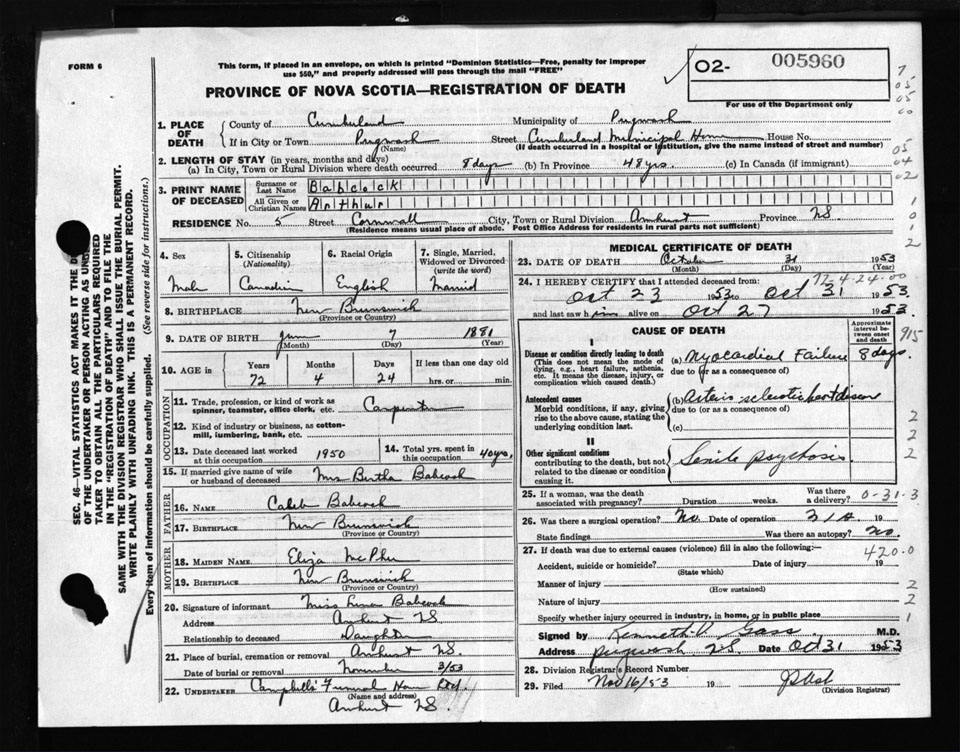 FORM 6
This form, if placed in an envelope, on which is printed "Dominion Statistics—Free, penalty for improper
use $50," and properly addressed will pass through the mail "FREE"
PROVINCE OF NOVA SCOTIA—REGISTRATION OF DEATH
02- 005960
For use of the Department only
7
05
05
00
1. PLACE OF DEATH County of Cumberland Municipality of Pugwash
If in City or Town Pugwash Street Cumberland Municipal Home House No.
(Name) (If death occurred in a hospital or institution, give the name instead of street and number)
05
04
02
2. LENGTH OF STAY (in years, months and days)
(a) In City, Town or Rural Division where death occurred 8 days (b) In Province 48 yrs. (c) In Canada (if immigrant)
3. PRINT NAME OF DECEASED Surname or Last Name Babcock
All Given or Christian Names Arthur
RESIDENCE No. 5 Street Cornwall City, Town or Rural Division Amherst Province NS
(Residence means usual place of abode. Post Office Address for residents in rural parts not sufficient)
1
0
1
2
SEC. 46—VITAL STATISTICS ACT MAKES IT THE DU
OF THE UNDERTAKER OR PERSON ACTING AS UND
TAKER TO OBTAIN ALL THE PARTICULARS REQUIRED
IN THE "REGISTRATION OF DEATH" AND TO FILE THE
SAME WITH THE DIVISION REGISTRAR WHO SHALL ISSUE THE BURIAL PERMIT.
WRITE PLAINLY WITH UNFADING INK. THIS IS A PERMANENT RECORD.
Every item of information should be carefully supplied. (See reverse side for instructions.)
4. Sex 5. Citizenship (Nationality) 6. Racial Origin 7. Single, Married, Widowed or Divorced (write the word)
Male Canadian English Married
8. BIRTHPLACE New Brunswick
(Province or Country)
9. DATE OF BIRTH June 7 1881
(Month) (Day) (Year)
10. AGE in Years Months Days If less than one day old
72 4 24 hrs. or min.
OCCUPATION
11. Trade, profession, or kind of work as
spinner, teamster, office clerk, etc. Carpenter
12. Kind of industry or business, as cotton-
mill, lumbering, bank, etc.
13. Date deceased last worked at this occupation 1950 14. Total yrs. spent in this occupation 40 yrs.
15. If married give name of wife
or husband of deceased Mrs Bertha Babcock
FATHER
16. NAME Caleb Babcock
17. BIRTHPLACE New Brunswick
(Province or Country)
MOTHER
18. MAIDEN NAME Eliza McPhee
19. BIRTHPLACE New Brunswick
(Province or Country)
20. Signature of informant Miss Babcock
Address Amherst NS
Relationship to deceased Daughter
21. Place of burial, cremation or removal Amherst NS.
Date of burial or removal November 3/53
22. UNDERTAKER Campbells Funeral Home Ltd.
(Name and address)
Amherst NS.
MEDICAL CERTIFICATE OF DEATH
23. DATE OF DEATH October 31 1953
(Month) (Day) (Year)
24. I HEREBY CERTIFY that I attended deceased from: 72-4-24-00
Oct 23 1953 to Oct 31 1953.
and last saw him alive on Oct 27 1953.
CAUSE OF DEATH
Approximate interval between onset and death
915
I
Disease or condition directly leading to death
(This does not mean the mode of dying, e.g., heart failure, asthenia, etc. It means the disease, injury, or complication which caused death.)
(a) Myocardial Failure 8 days.
due to (or as a consequence of)
Antecedent causes
Morbid conditions, if any, giving rise to the above cause, stating the underlying condition last.
(b) Arterio-sclerotic heart disease
due to (or as a consequence of)
(c)
2
2
2
II
Other significant conditions
contributing to the death, but not related to the disease or condition causing it.
Senile psychosis.
25. If a woman, was the death associated with pregnancy? Duration weeks. Was there a delivery? 0-31-3
26. Was there a surgical operation? No. Date of operation 19
State findings Was there an autopsy? No.
27. If death was due to external causes (violence) fill in also the following:— 420.0
Accident, suicide or homicide? Date of injury 19
(State which)
Manner of injury 2
(How sustained)
Nature of injury 2
Specify whether injury occurred in industry, in home, or in public place 1
Signed by Kenneth Gass M.D.
Address Pugwash NS. Date Oct 31 1953
28. Division Registrar's Record Number
29. Filed Nov 16/53 19
(Division Registrar)